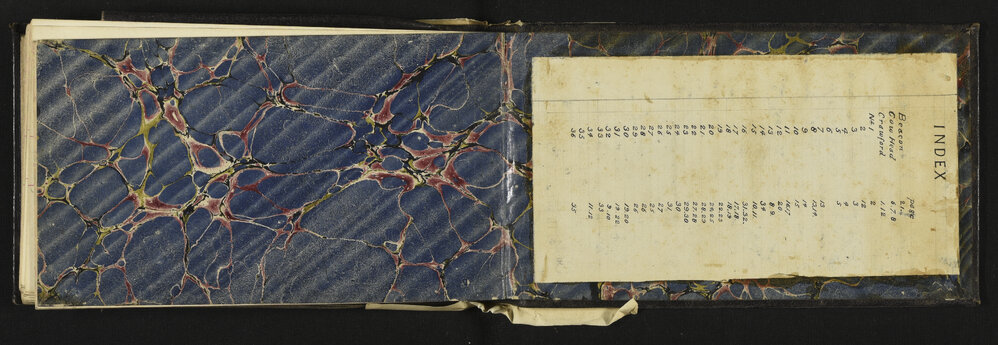 INDEX
page
Beacon
Cow Head 5.7.8
Crawford 1.12
No 1 2
2 12
3 3
4 4
5 5
6
7 13
8 13.14.
9 14
10 15
11 16.17
12 20
13 8.9.
14 34
15 10.11.
16 31.32.
17 17.18.
18 18.19
19 22.23
20 24.25
21 28.29
22 27.28
23 29.30
24 30
25 31
26 27
27 25
28 26
29 26
30 19.20
31 19.22
32 9.10
33 33
34 11.12
35
36 35